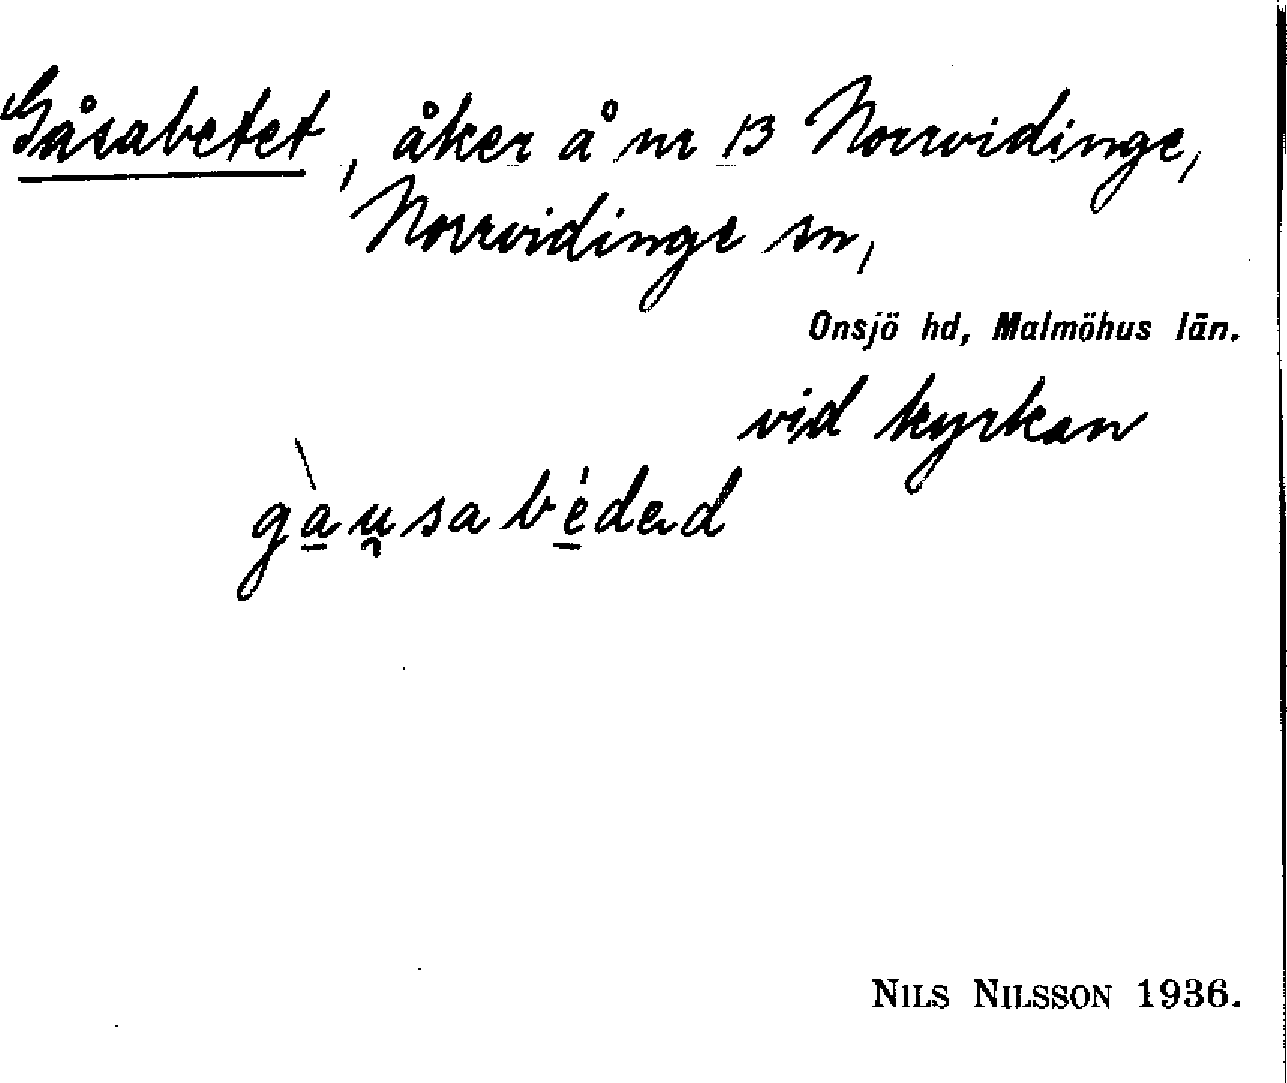 Gåsabetet, åker å nr 13 Norrvidinge,
Norrvidinge sn,
Onsjö hd, Malmöhus län.
vid kyrkan
gà̱u̯sabé̱dəd
NILS NILSSON 1936.